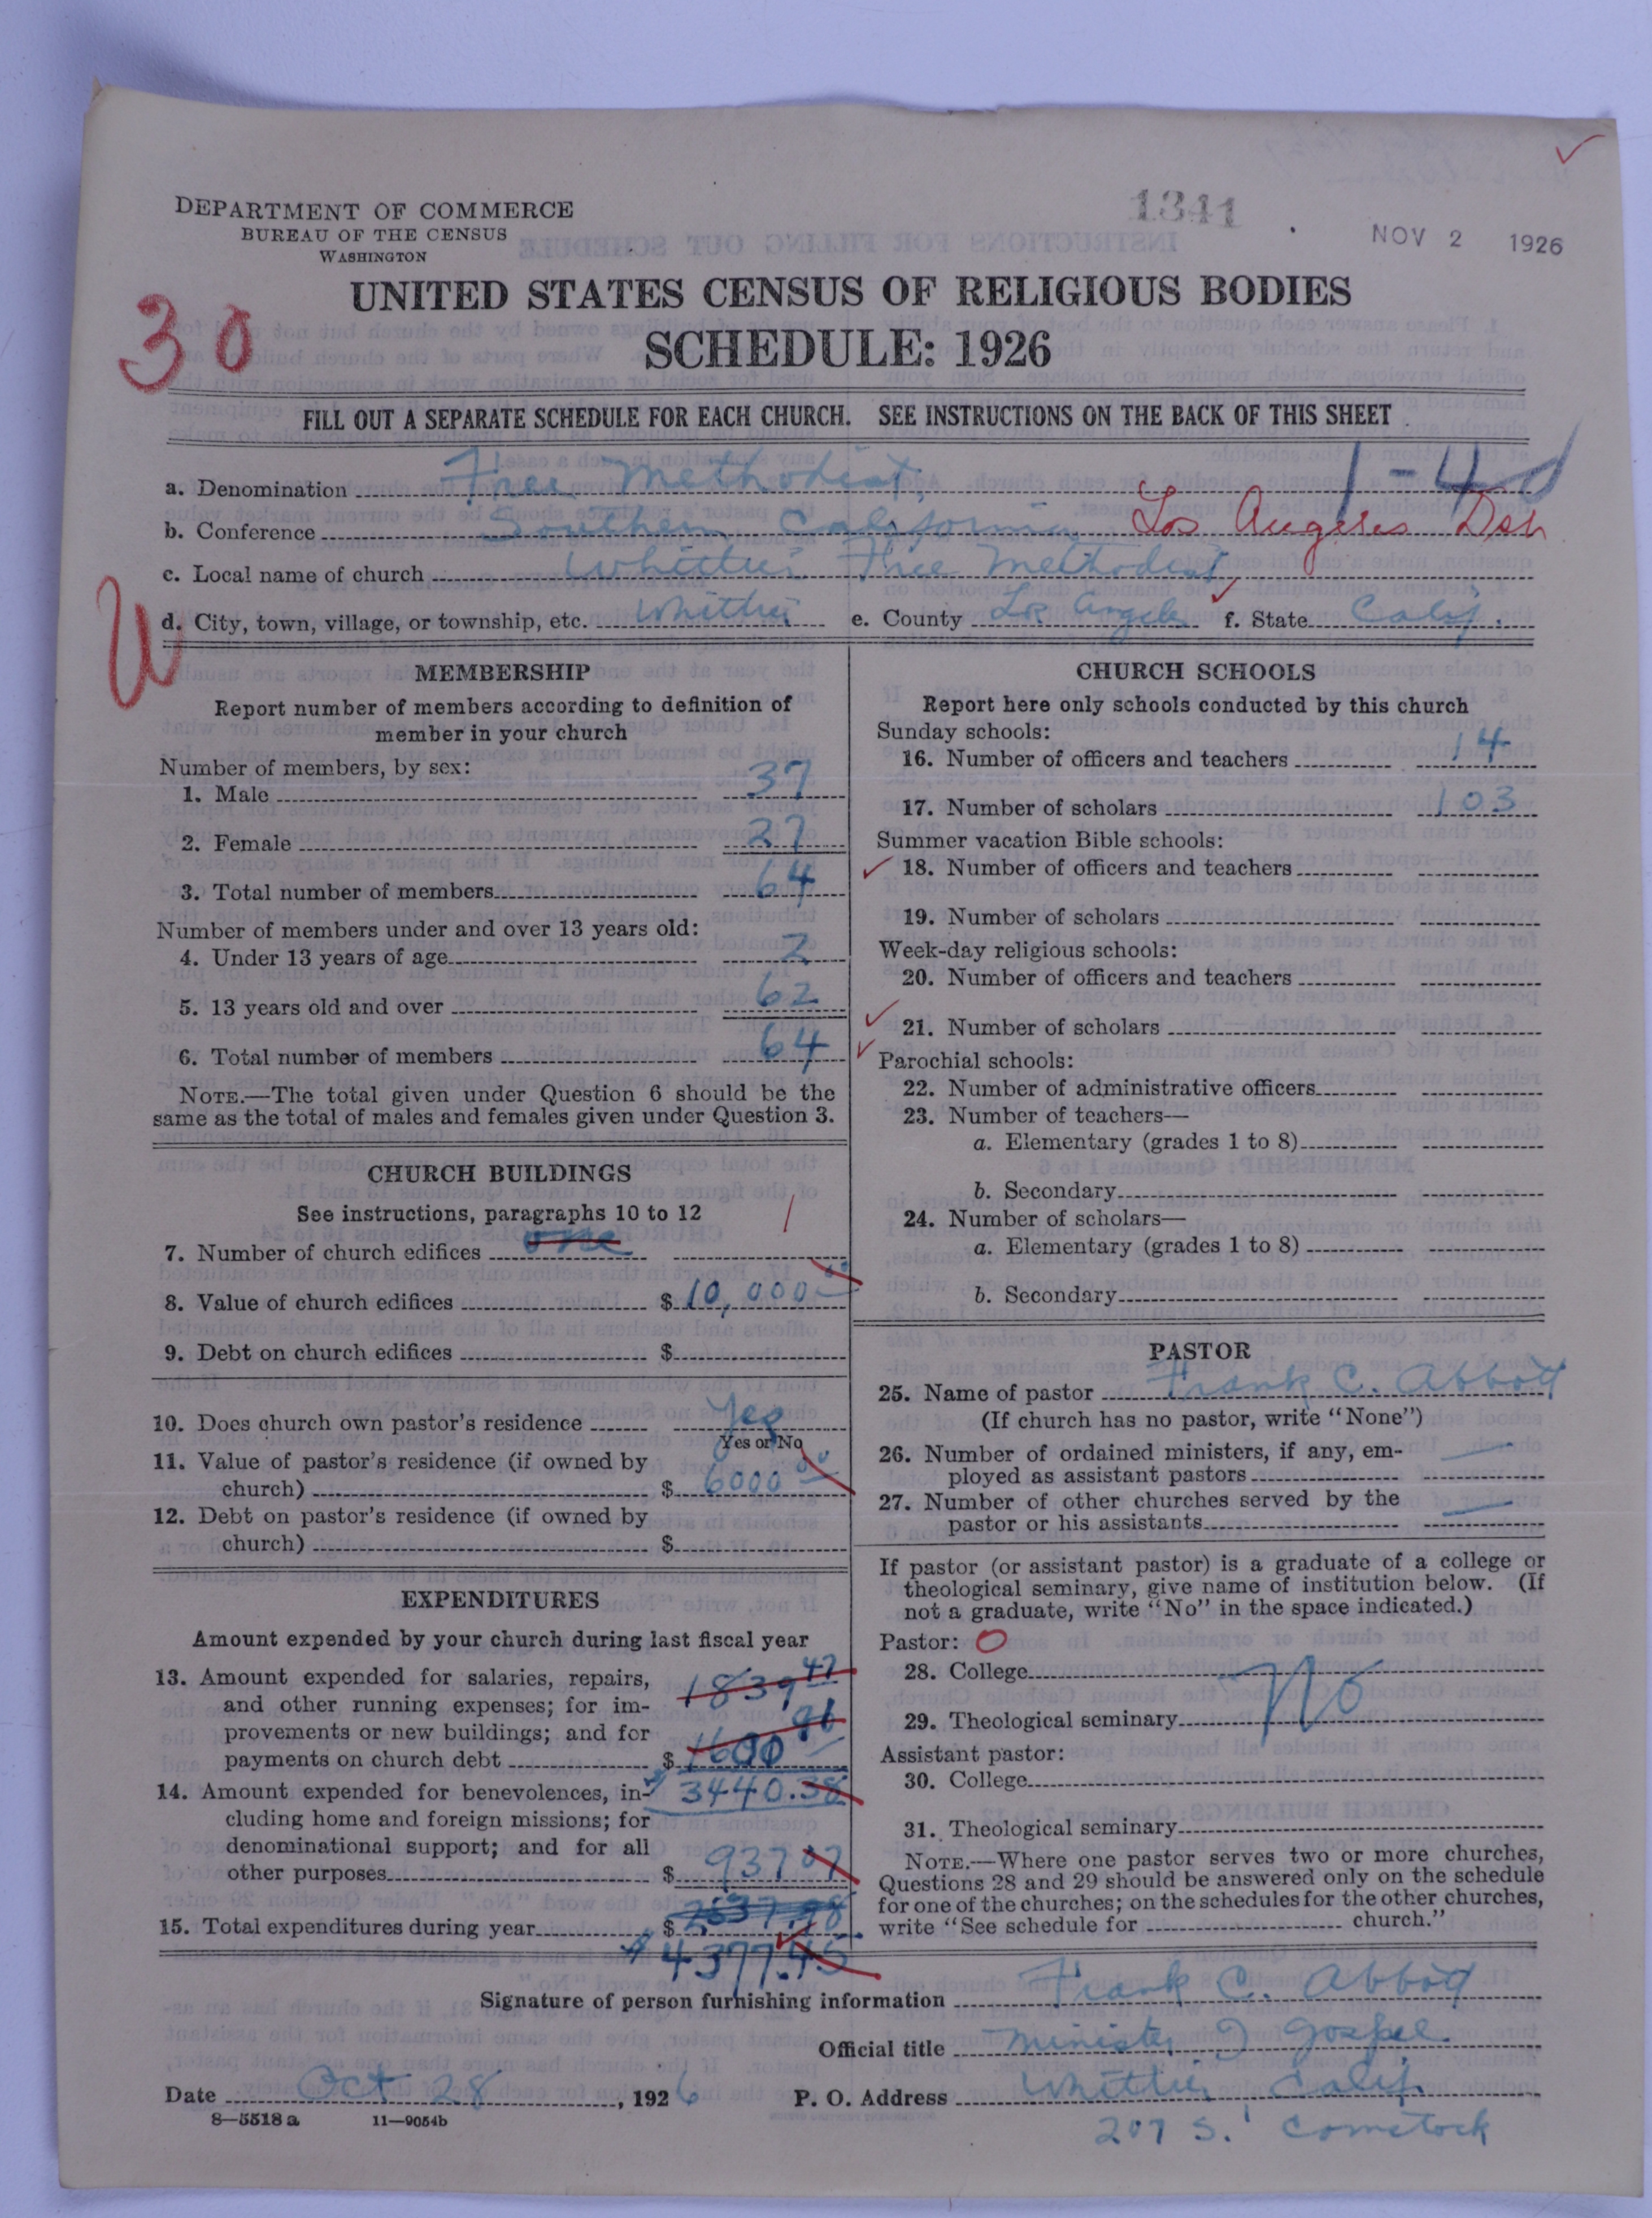 1341
NOV 2 1926
DEPARTMENT OF COMMERCE
BUREAU OF THE CENSUS
WASHINGTON
UNITED STATES CENSUS OF RELIGIOUS BODIES
SCHEDULE: 1926
30
FILL OUT A SEPARATE SCHEDULE FOR EACH CHURCH. SEE INSTRUCTIONS ON THE BACK OF THIS SHEET
1-40
a. Denomination Free Methodist
b. Conference Southern California Los Angeles Dsn
c. Local name of church Whittier Free Methodist
W
d. City, town, village, or township, etc. Whittier e. County Los Angeles f. State Calif.
MEMBERSHIP
Report number of members according to definition of
member in your church
Number of members, by sex:
1. Male 37
2. Female 27
3. Total number of members 64
Number of members under and over 13 years old:
4. Under 13 years of age 2
5. 13 years old and over 62
6. Total number of members 64
NOTE.—The total given under Question 6 should be the
same as the total of males and females given under Question 3.
CHURCH BUILDINGS
See instructions, paragraphs 10 to 12
7. Number of church edifices one 1
8. Value of church edifices $ 10,000 00
9. Debt on church edifices $
10. Does church own pastor's residence Yes
Yes or No
11. Value of pastor's residence (if owned by
church) $ 6000 00
12. Debt on pastor's residence (if owned by
church) $
EXPENDITURES
Amount expended by your church during last fiscal year
13. Amount expended for salaries, repairs, 1839 47
and other running expenses; for im-
provements or new buildings; and for
payments on church debt $ 1600 91
14. Amount expended for benevolences, in- $ 3440.38
cluding home and foreign missions; for
denominational support; and for all
other purposes $ 937 07
15. Total expenditures during year $ 2537.98
$ 4377.45
CHURCH SCHOOLS
Report here only schools conducted by this church
Sunday schools:
16. Number of officers and teachers 14
17. Number of scholars 103
Summer vacation Bible schools:
18. Number of officers and teachers
19. Number of scholars
Week-day religious schools:
20. Number of officers and teachers
21. Number of scholars
Parochial schools:
22. Number of administrative officers
23. Number of teachers—
a. Elementary (grades 1 to 8)
b. Secondary
24. Number of scholars—
a. Elementary (grades 1 to 8)
b. Secondary
PASTOR
25. Name of pastor Frank C. Abbott
(If church has no pastor, write "None")
26. Number of ordained ministers, if any, em-
ployed as assistant pastors —
27. Number of other churches served by the
pastor or his assistants —
If pastor (or assistant pastor) is a graduate of a college or
theological seminary, give name of institution below. (If
not a graduate, write "No" in the space indicated.)
Pastor: O
28. College
No
29. Theological seminary
Assistant pastor:
30. College
31. Theological seminary
NOTE.—Where one pastor serves two or more churches,
Questions 28 and 29 should be answered only on the schedule
for one of the churches; on the schedules for the other churches,
write "See schedule for church."
Signature of person furnishing information Frank C. Abbott
Official title Minister of Gospel
Date Oct 28, 1926 P. O. Address Whittier Calif.
8—5518a 11—9054b
207 S. Comstock